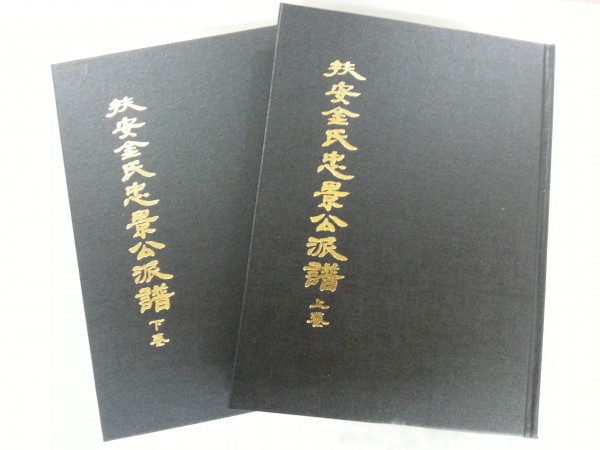 扶安金氏忠景公派譜 下卷
扶安金氏忠景公派譜 上卷